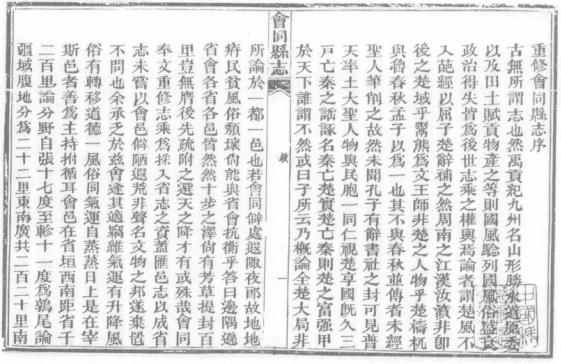 重修會同縣志序
古無所謂志也然禹貢紀九州名山形勝水道原委
以及田土賦貢物產之等則國風騐列國風俗盛衰
政治得失皆為後世志乘之權輿焉論者謂楚風不
入葩經以屈子楚辭補之然周南之江漢汝濆非卽
後之楚域乎鬻熊為文王師非楚之人物乎楚檮杌
與魯春秋孟子以為一也其不與春秋並傳者未經
聖人筆削之故然未聞孔子有辭書社之封可見普
天率土大聖人物與民胞一同仁視楚享國旣久三
戸亡秦之謡諑名秦亡楚實楚亡秦則楚之富强甲
於天下誰謂不然或曰子所云乃概論全楚大局非
會同縣志
敘
一
所論於一都一邑也若會同僻處遐陬夜郎故地地
瘠民貧風俗頽壞尙能與省會抗衡乎答曰邊隅遜
省會各省各邑皆然然十步之澤尙有芳草提封百
里豈無後先疏附之選天之降才有或殊哉會同
奉文重修志乘為採入省志之資蓋匯邑志以成省
志未嘗以會邑僻陋遐荒非聲名文物之邦遂棄置
不問也余承乏於兹會逢其適竊維氣運有升降風
俗有轉移道德一風俗同氣運自蒸蒸日上是在宰
斯邑者善為主持拊循耳會邑在省垣西南距省千
二百里論分野自張十七度至軫十一度為鶉尾論
疆域腹地分為二十二里東南廣共二百二十里南